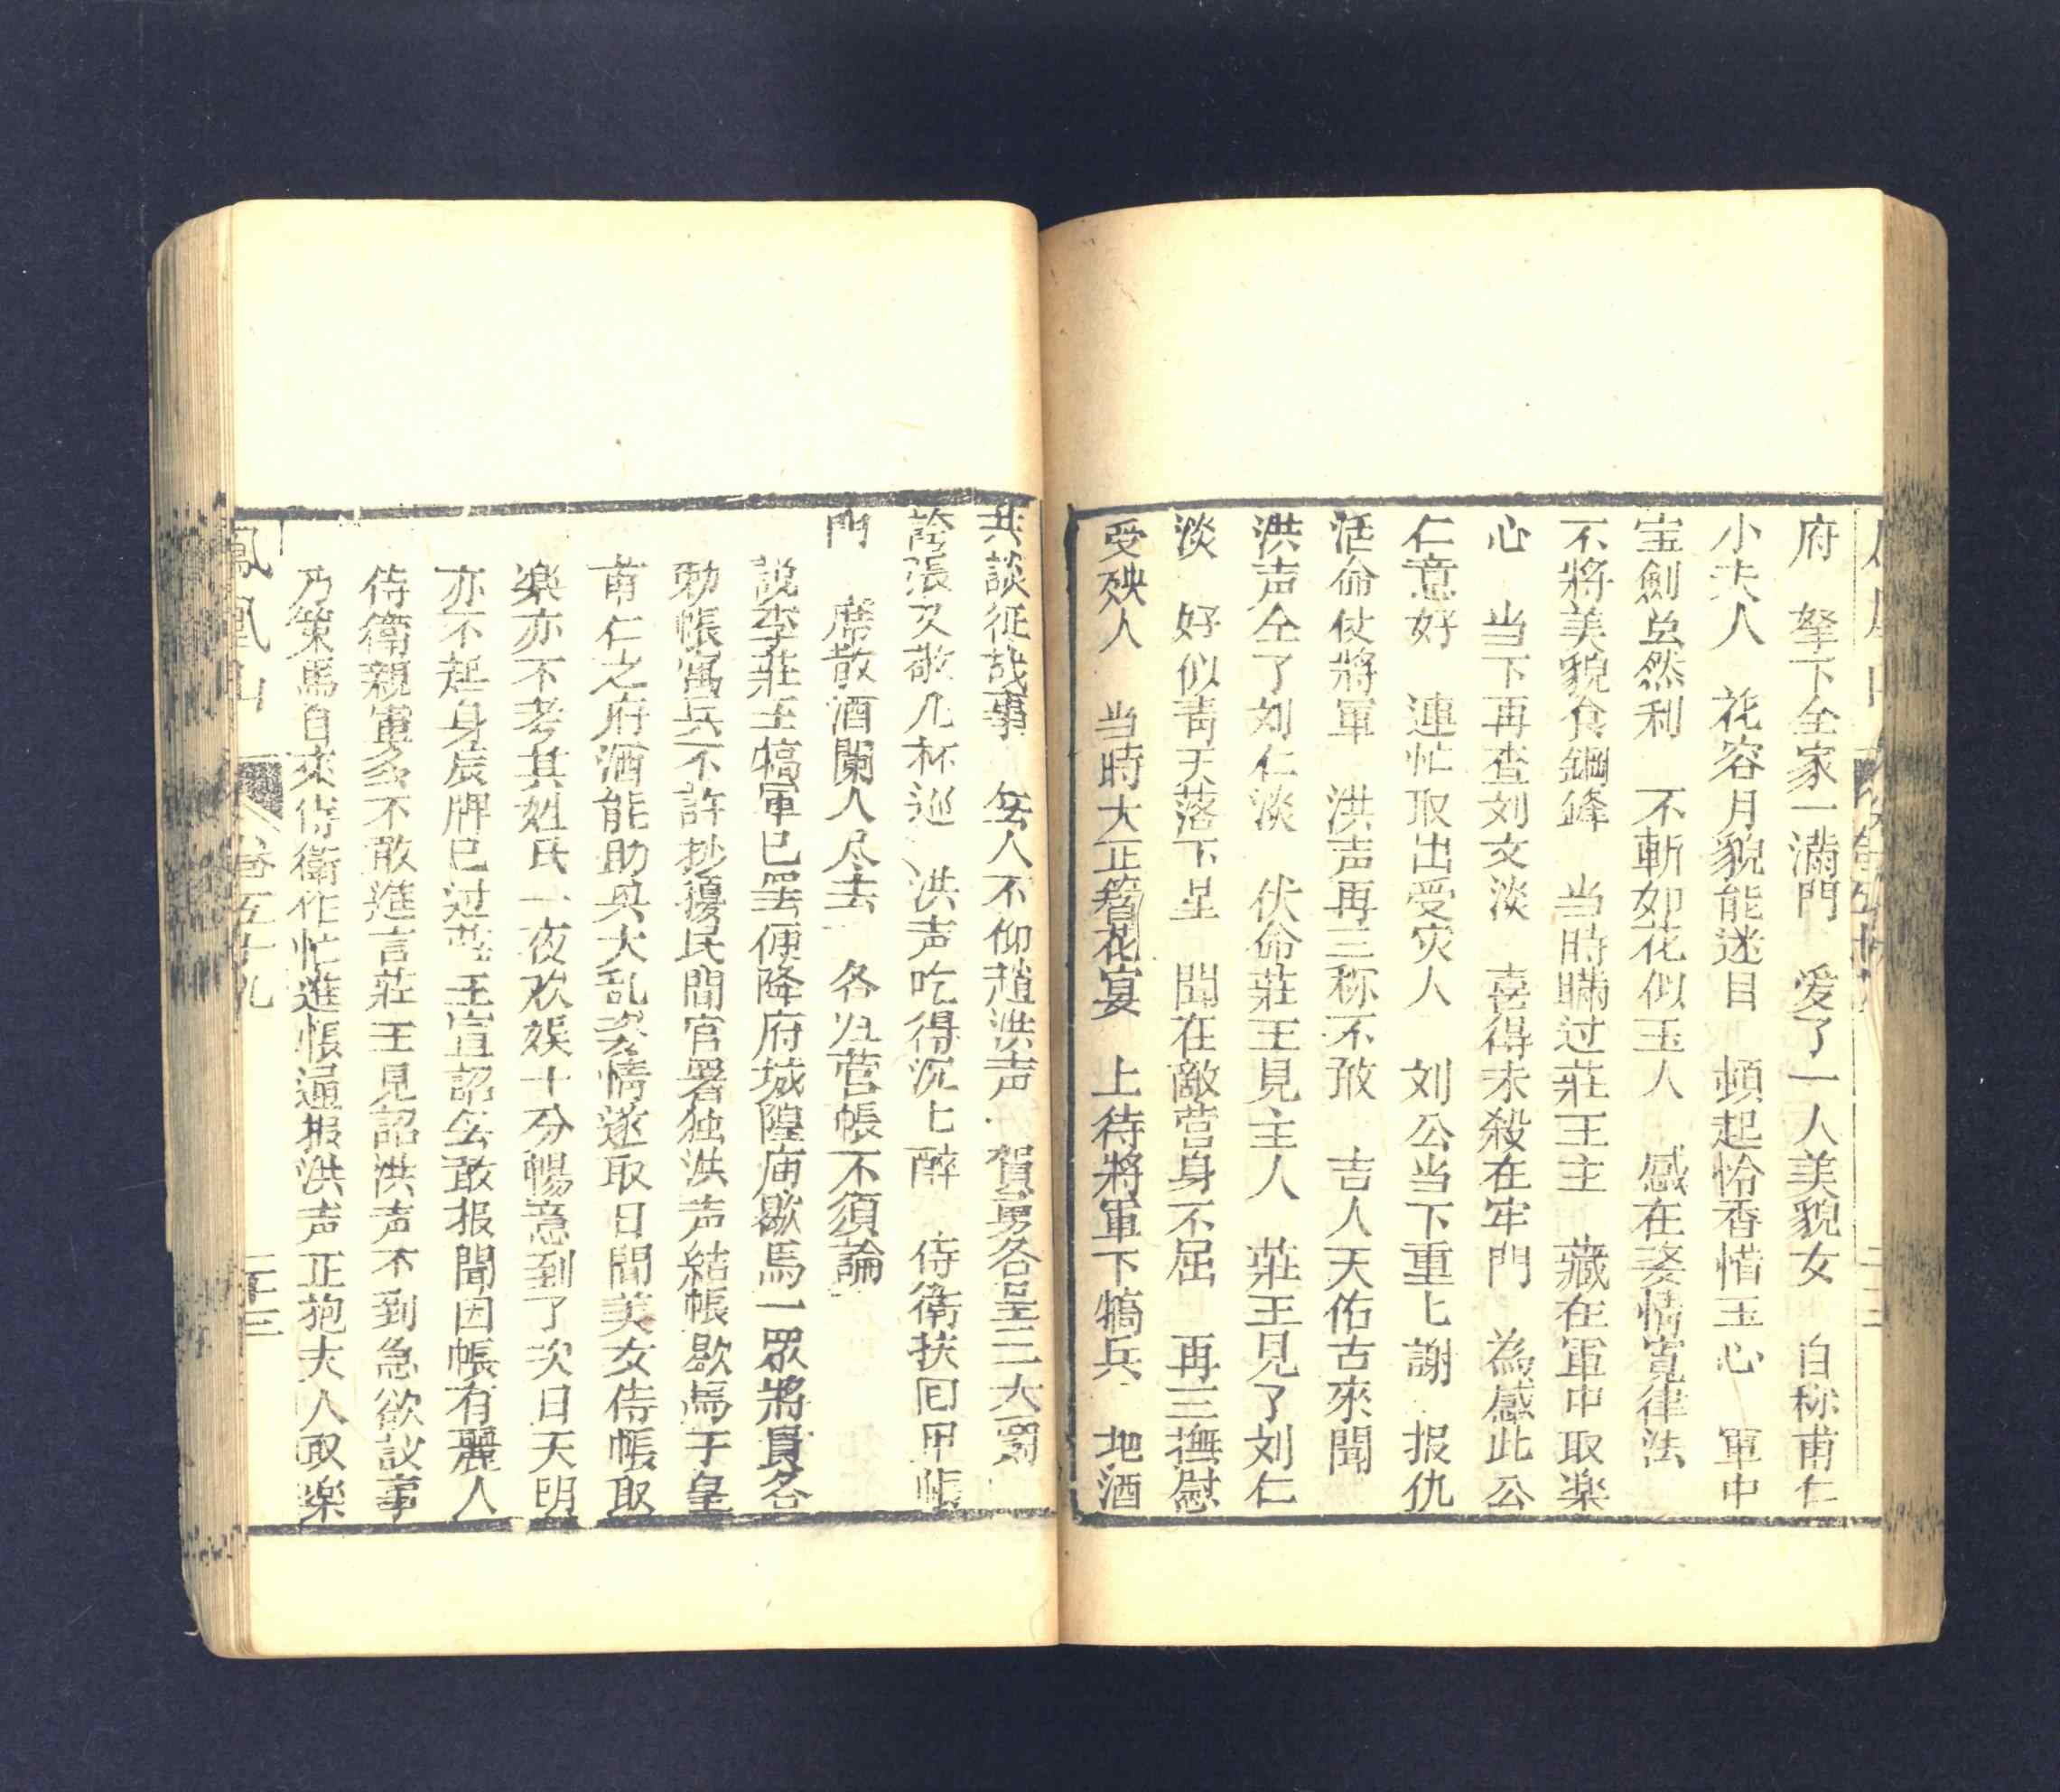 府　孥下全家一滿門　爱了一人美貌女　自称甫仁
小夫人　花容月貌能迷目　頓起怜香惜玉心　軍中
宝劍虽然利　不斬如花似玉人　感在姿情寬律法
不將美貌食鋼鋒　当時瞞过莊王主　藏在軍中取楽
心　当下再查刘文淡　喜得未殺在牢門　為感此公
仁意好　連忙取出受灾人　刘公当下重匕謝　报仇
活命仗將軍　洪声再三称不敢　吉人天佑古來聞
洪声全了刘仁淡　伏命莊王見主人　莊王見了刘仁
淡　好似青天落下星　聞在敵营身不屈　再三撫慰
受殃人　当時大正簪花宴　上待將軍下犒兵　地酒
共談征战事　仝人不仰趙洪声　賀勇各呈三大
誇張又敬几杯巡　洪声吃得沉匕醉　侍衛扶囘甲帳
門　席散酒闌人尽去　各归营帳不須論
説李莊王犒軍已罢便降府城隍庙歇馬一眾將員各
勒帳寓兵不許抄擾民間官署独洪声結帳歇馬于皇
甫仁之府酒能助兴大乱姿情遂取日間美女侍帳取
楽亦不考其姓氏一夜欢娱十分暢意到了次日天明
亦不起身辰牌已过莊王宣詔仝敢报聞因帳有麗人
侍衛親軍多不敢進言莊王見詔洪声不到急欲议事
乃策馬自來侍衛作忙進帳逼报洪声正抱夫人取楽
鳳凰山　卷五十九